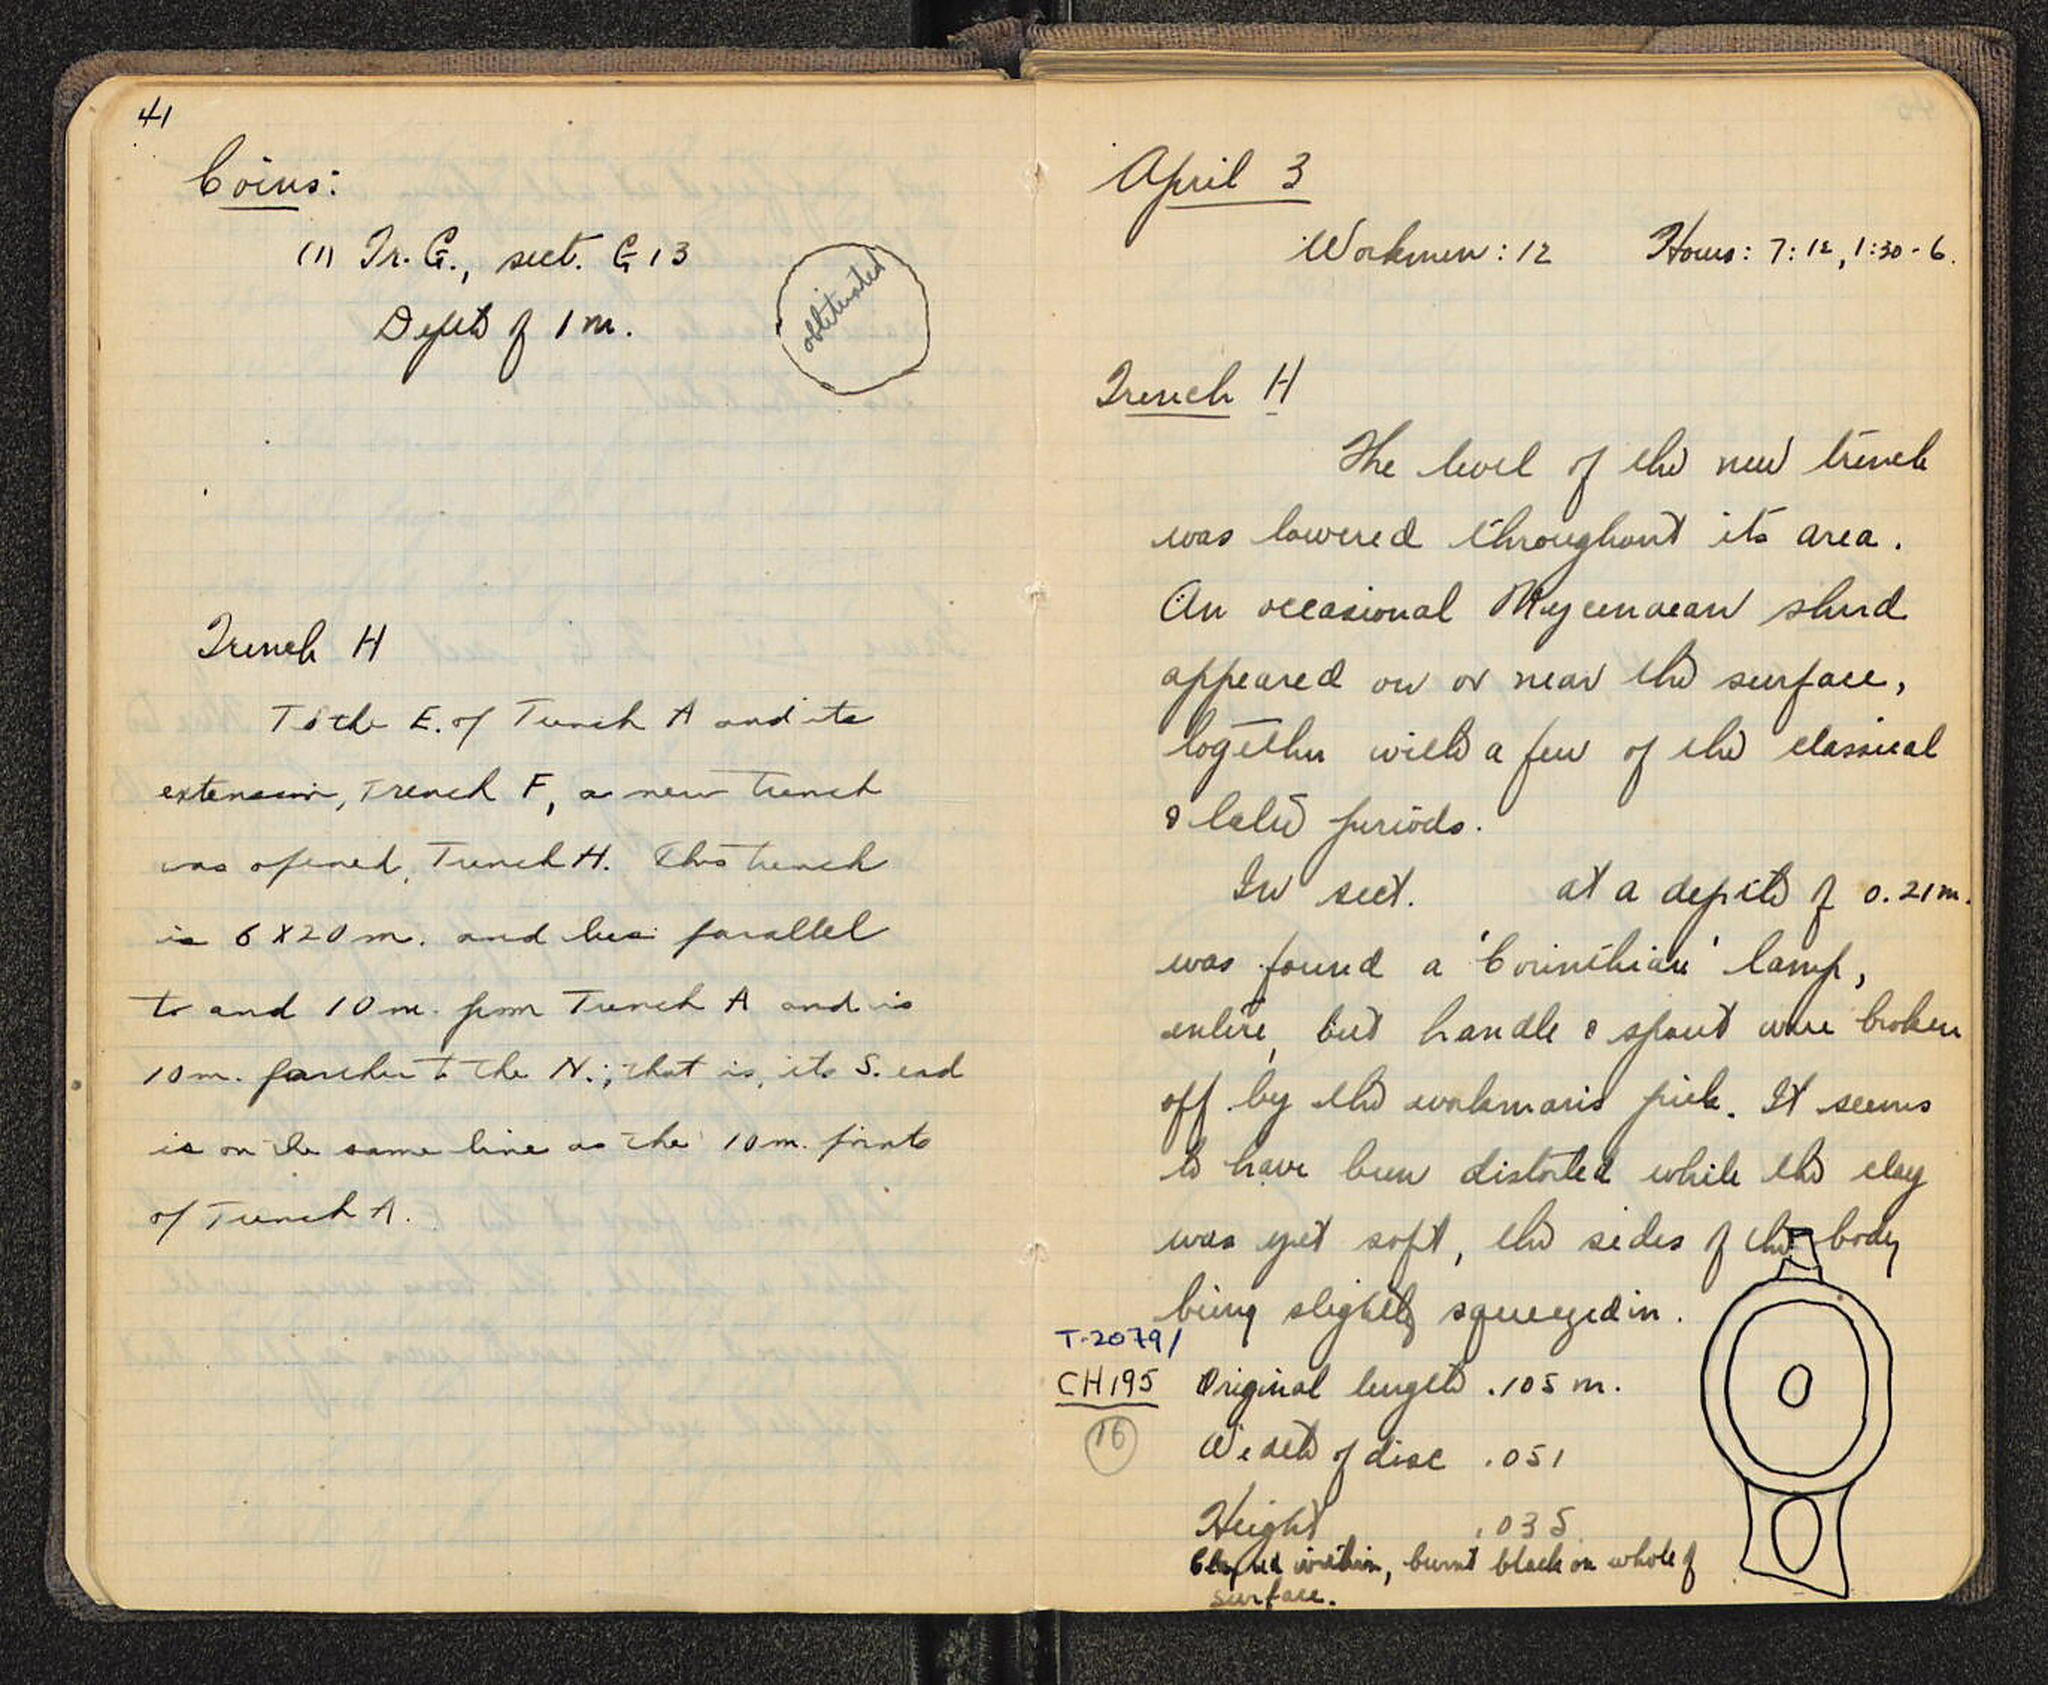 41
Coins:
(1) Tr. G., sect. G 13
Depth of 1 m.
obliterated
Trench H
To the E. of Trench A and its
extension, Trench F, a new trench
was opened, Trench H. This trench
is 6 X 20 m. and lies parallel
to and 10 m. from Trench A and is
10 m. farther to the N.; that is, its S. end
is on the same line as the 10 m. points
of Trench A.
April 3
Workmen: 12 Hours: 7:12, 1:30-6.
Trench H
The level of the new trench
was lowered throughout its area.
An occasional Mycenaean sherd
appeared on or near the surface,
together with a few of the classical
& later periods.
In sect. at a depth of 0.21 m.
was found a 'Corinthian' lamp,
entire, but handle & spout were broken
off by the workman's pick. It seems
to have been distorted while the clay
was yet soft, the sides of the body
being slightly squeezed in.
T-2079/
CH195 Original length .105 m.
16
Width of disc .051
Height .035
within, burnt black on whole of
surface.